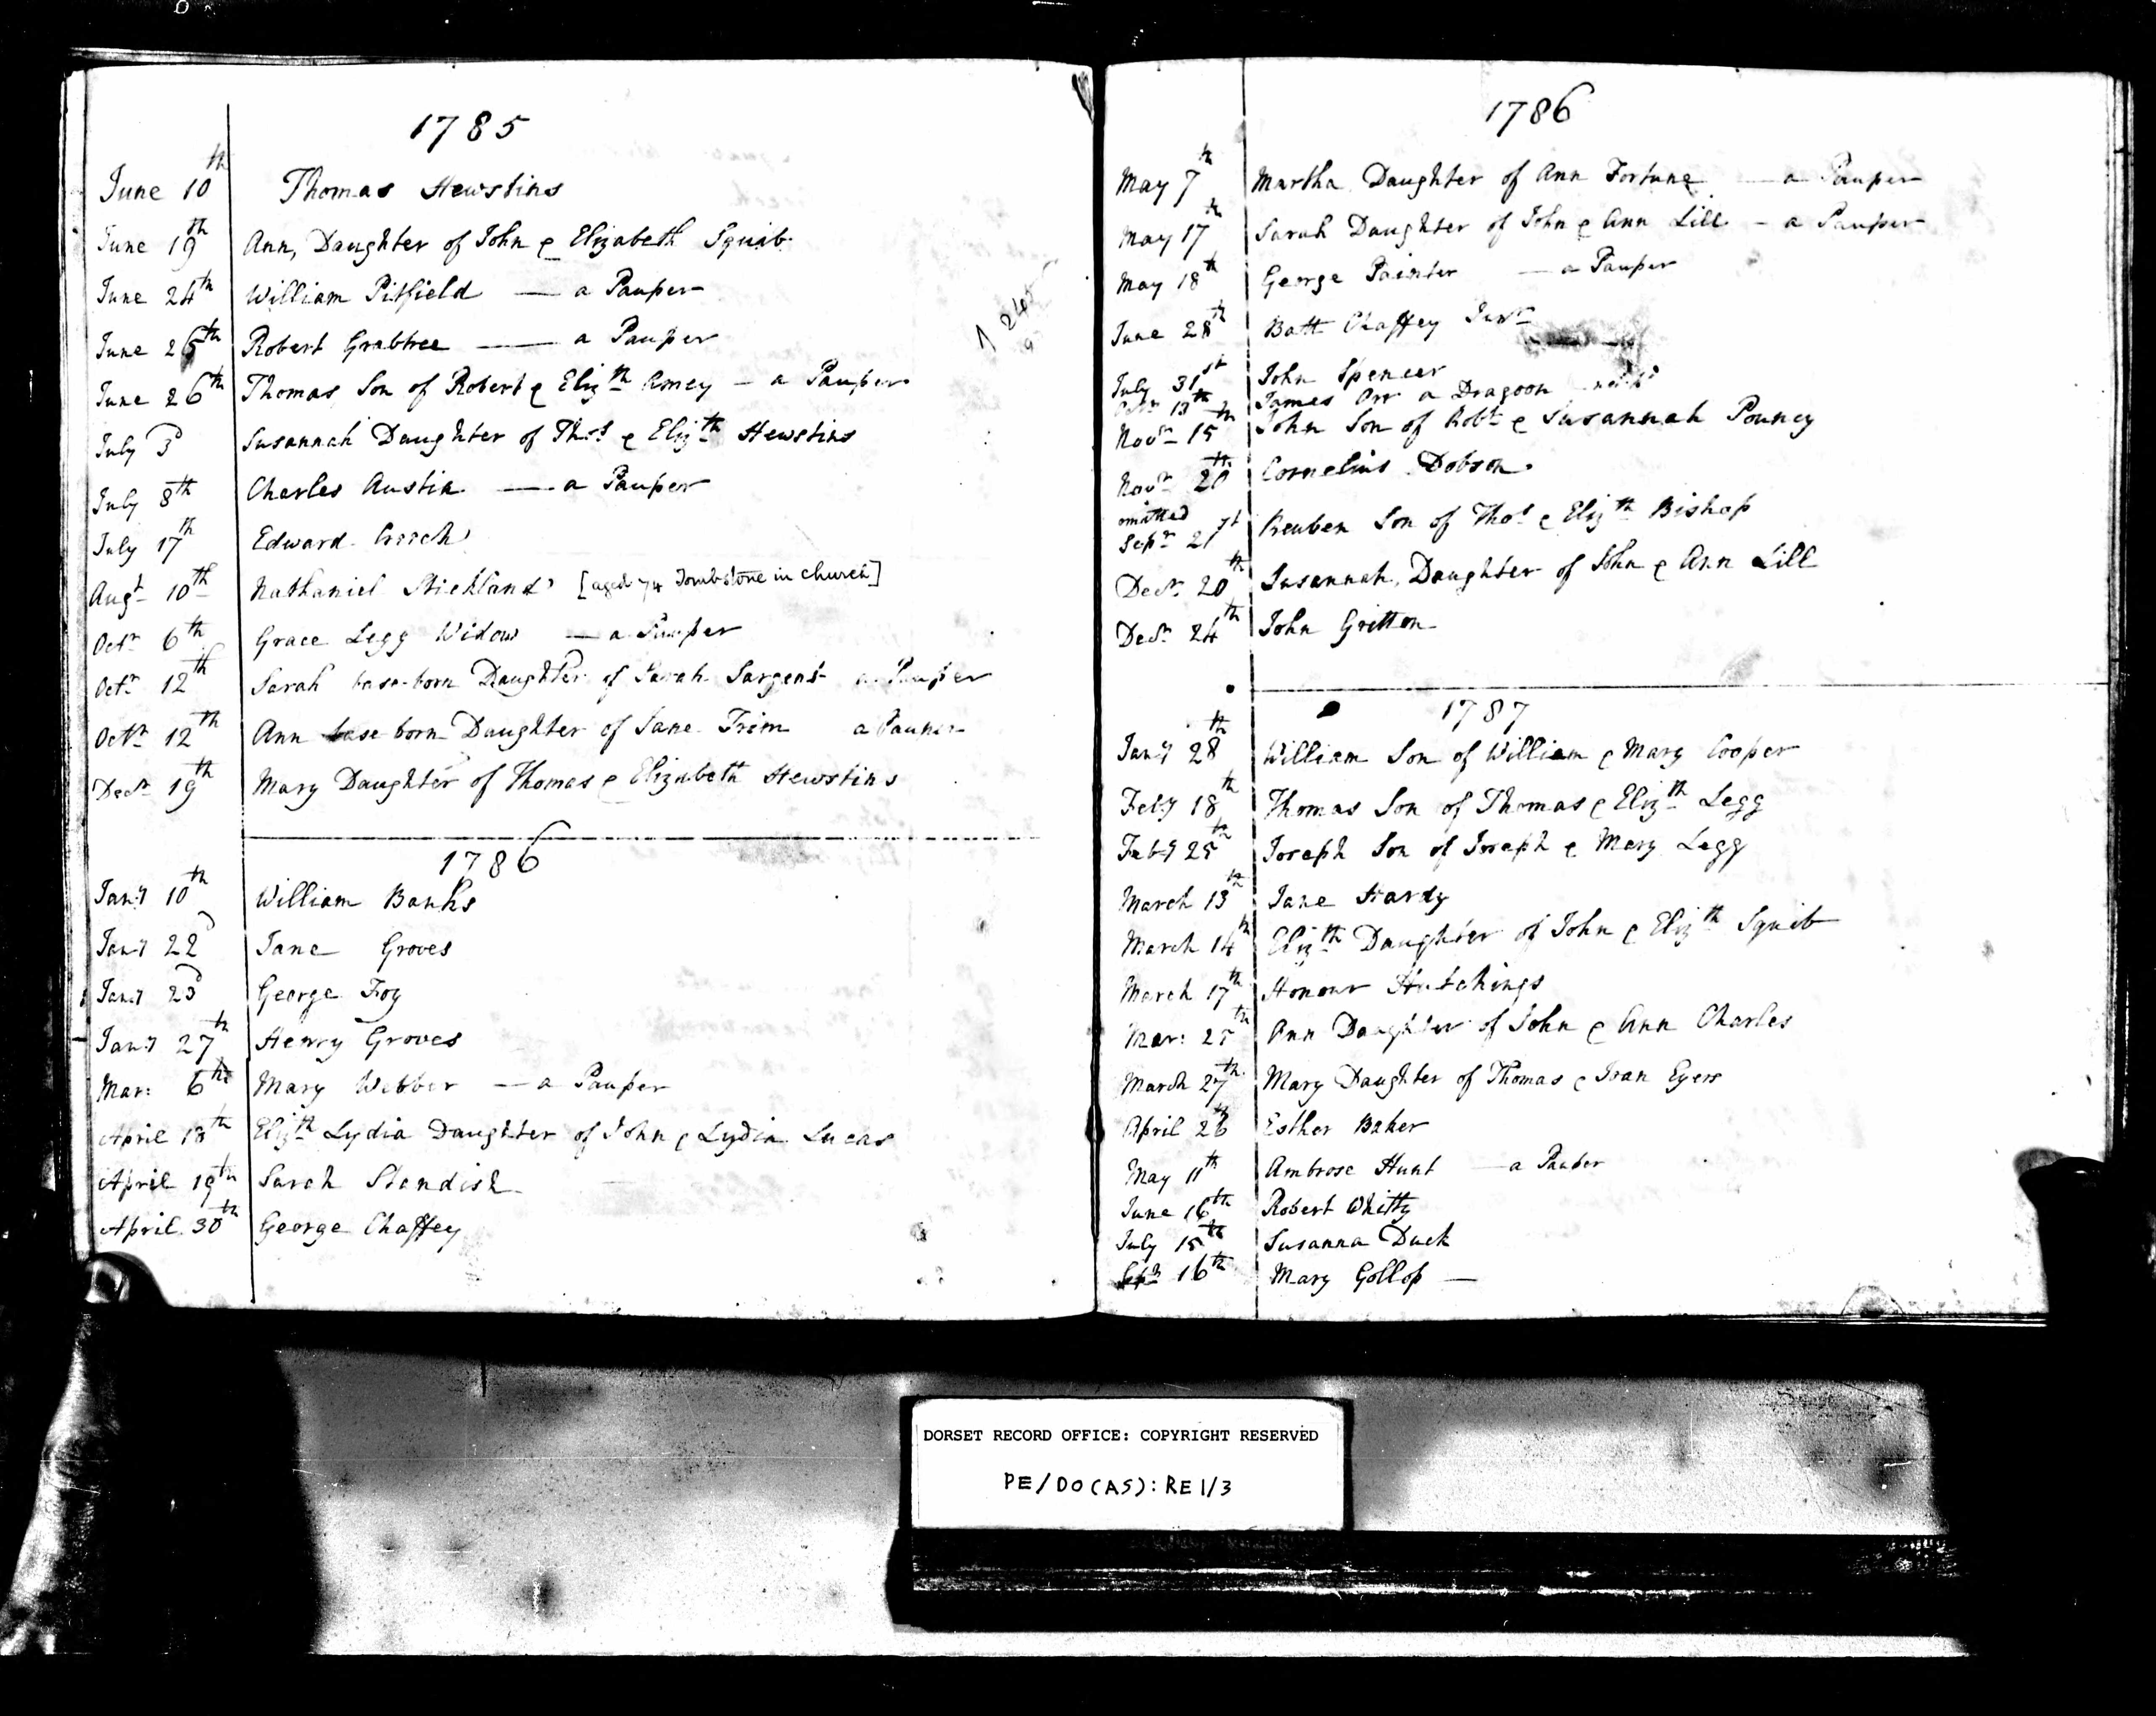 1785
June 10th Thomas Hewstins
June 19th Ann, Daughter of John & Elizabeth Squib
June 24th William Pitfield — a Pauper
June 26th Robert Grabtree — a Pauper
June 26th Thomas Son of Robert & Elizth Amey — a Pauper
July 3d Susannah Daughter of Thos & Elizth Hewstins
July 8th Charles Austin — a Pauper
July 17th Edward
Augt 10th Nathaniel Stickland [aged 74 Tombstone in church]
Octr 6th Grace Legg Widow — a Pauper
Octr 12th Sarah base-born Daughter of Sarah Sargent a Pauper
Octr 12th Ann base born Daughter of Jane Trim a Pauper
Decr 19th Mary Daughter of Thomas & Elizabeth Hewstins
1786
Jany 10th William Banks
Jany 22d Jane Groves
Jany 23d George Foy
Jany 27th Henry Groves
Mar: 6th Mary Webber — a Pauper
April 18th Elizth Lydia Daughter of John & Lydia Lucas
April 19th Sarah Standish
April 30th George Chaffey
1786
May 7th Martha Daughter of Ann Fortune — a Pauper
May 17th Sarah Daughter of John & Ann Lill — a Pauper
May 18th George Painter — a Pauper
June 28th Batt Chaffey Junr
July 31st John Spencer
Octr 13th James Orr a Dragoon
Novr 15th John Son of Robt & Susannah Pouncy
Novr 20th Cornelius Dobson
omitted
Sepr 21st Reuben Son of Thos & Elizth Bishop
Decr 20th Susannah, Daughter of John & Ann Lill
Decr 24th John Gritton
1787
Jany 28th William Son of William & Mary Cooper
Feby 18th Thomas Son of Thomas & Elizth Legg
Feby 25th Joseph Son of Joseph & Mary Legg
March 13th Jane Hardy
March 14th Elizth Daughter of John & Elizth Squib
March 17th Honour Hutchings
Mar: 25th Ann Daughter of John & Ann Charles
March 27th Mary Daughter of Thomas & Joan Eyers
April 26th Esther Baker
May 11th Ambrose Hunt — a Pauper
June 16th Robert Whitty
July 15th Susanna Duck
Sepr 16th Mary Gollop —
DORSET RECORD OFFICE: COPYRIGHT RESERVED
PE/DO(AS): RE1/3